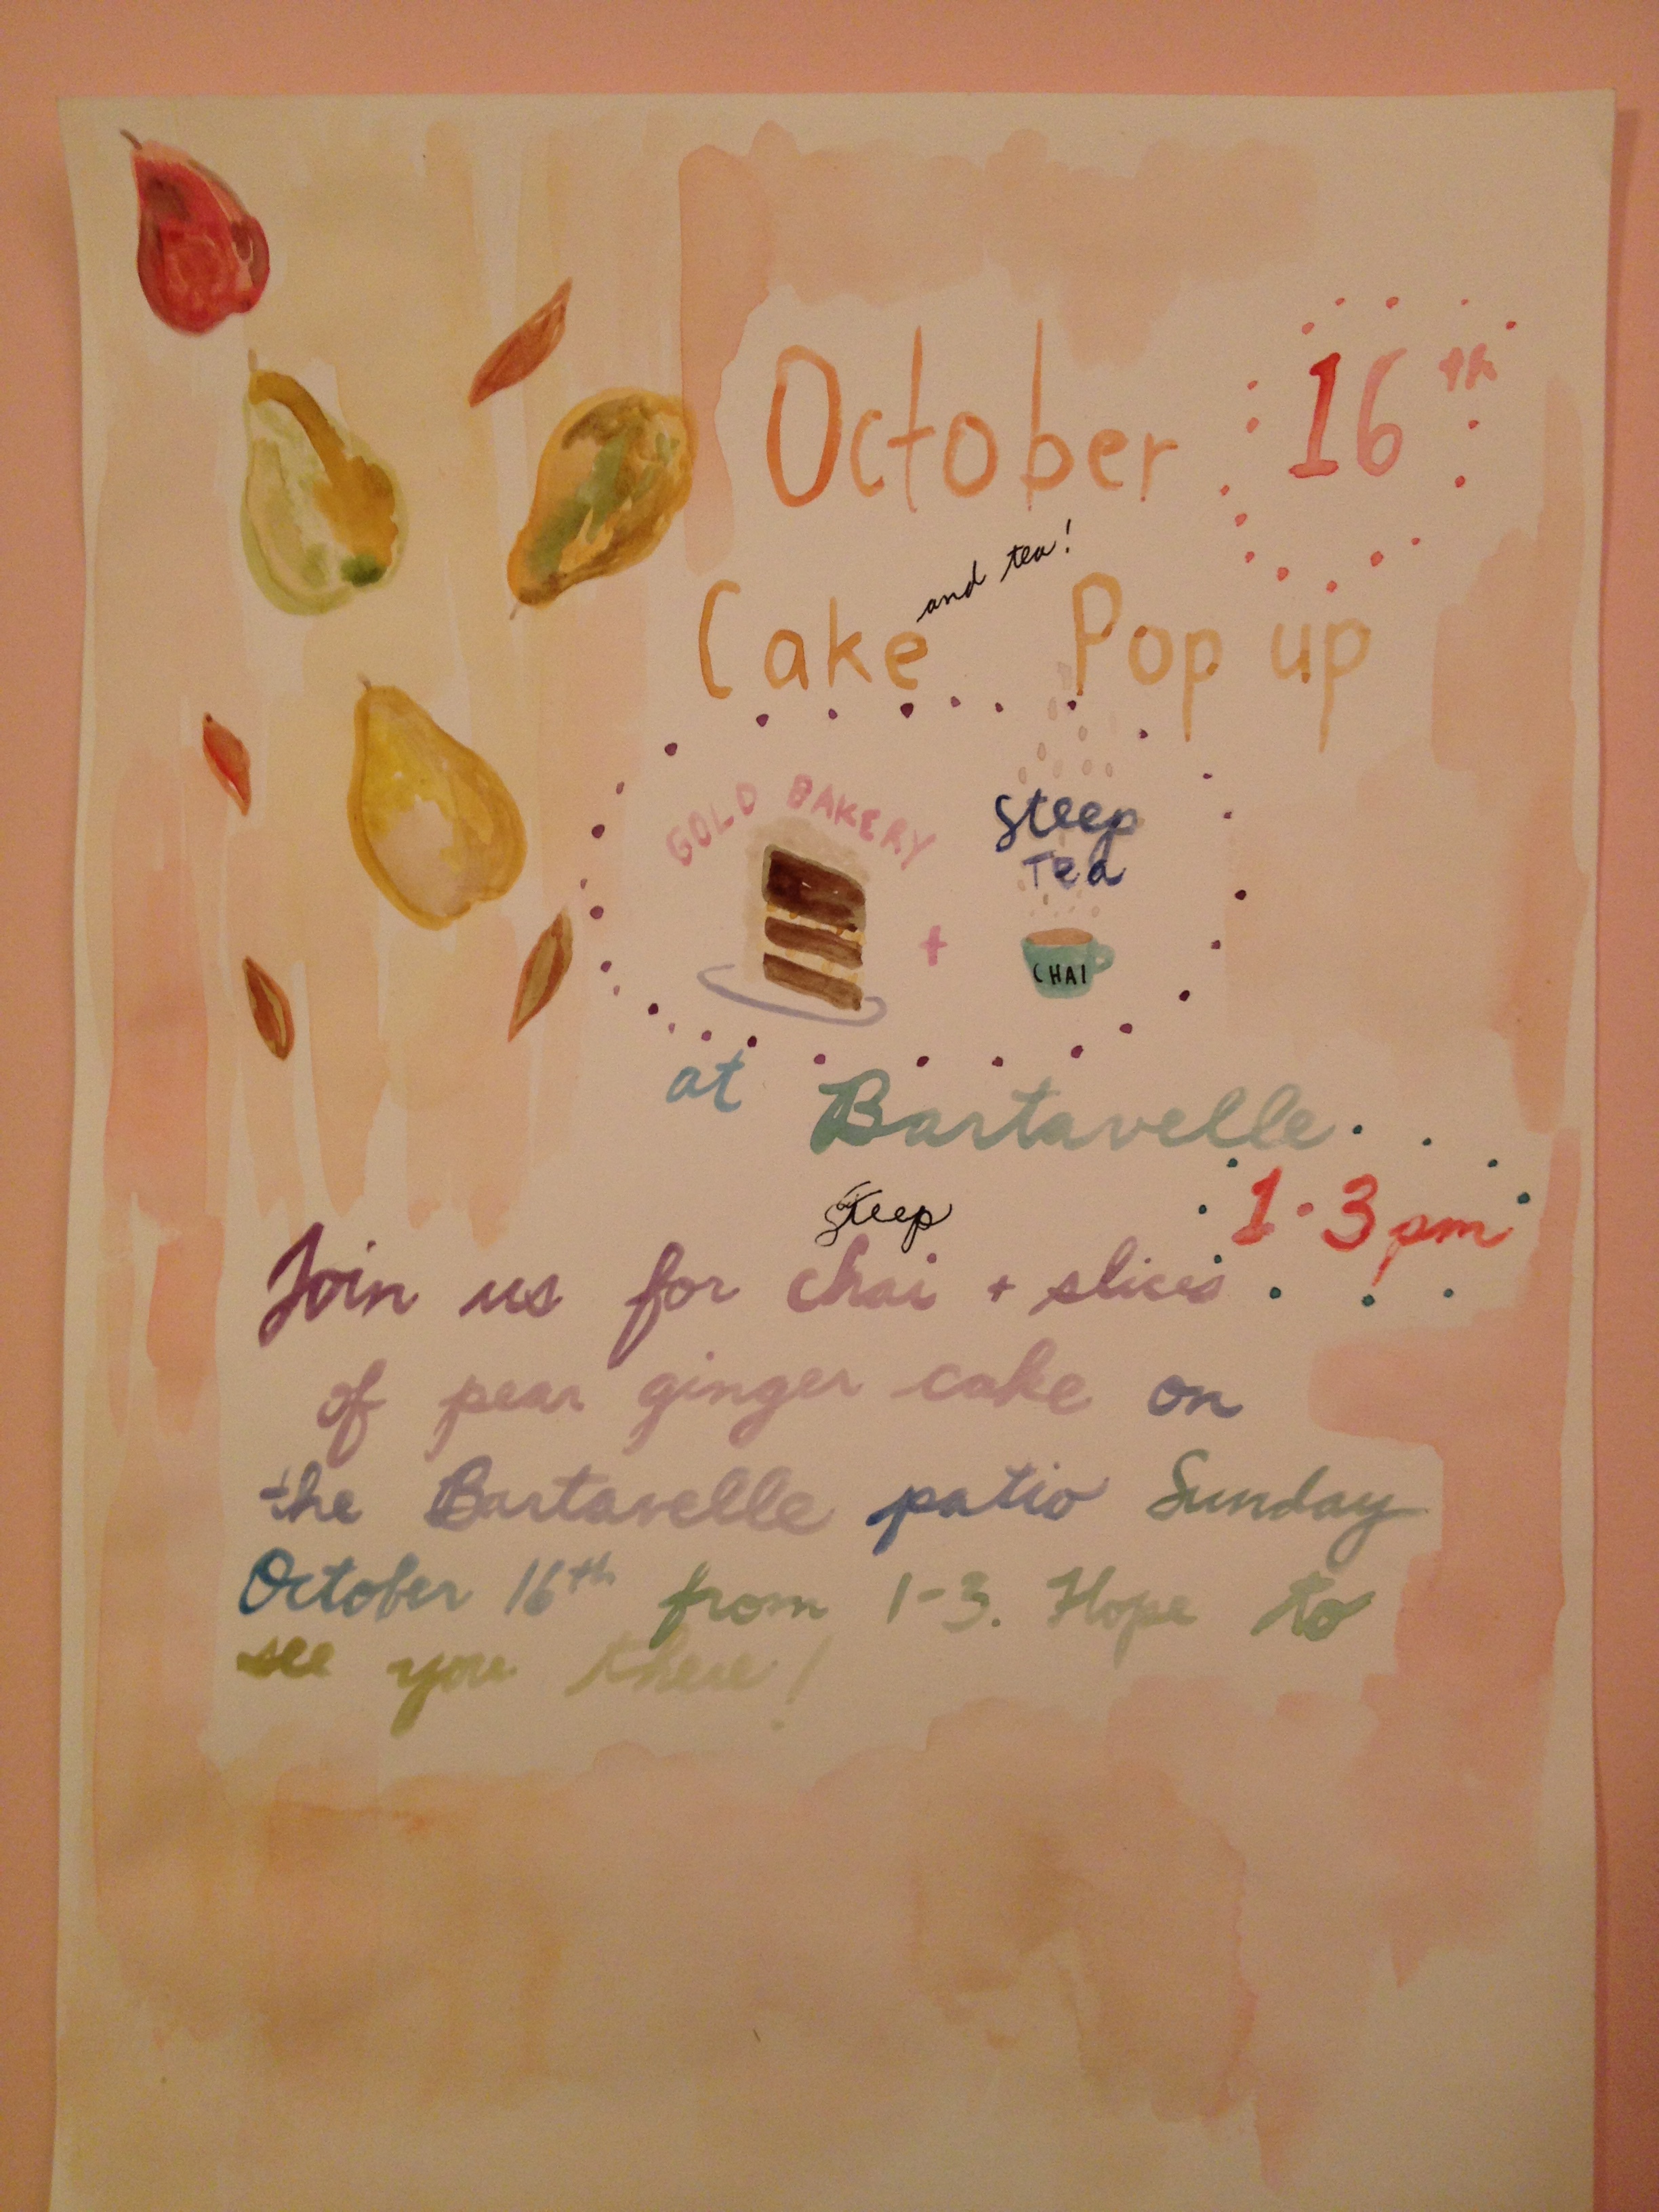 October 16th
and tea!
Cake Pop up
GOLD BAKERY
Steep
Tea
+
CHAI
at Bartavelle
1-3pm
Steep
Join us for chai + slices
of pear ginger cake on
the Bartavelle patio Sunday
October 16th from 1-3. Hope to
see you there!